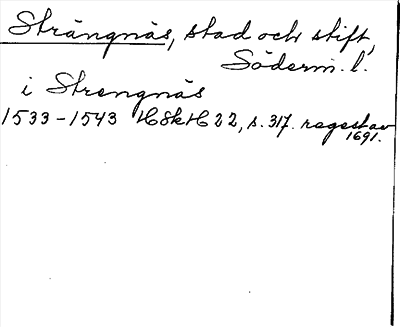 Strängnäs, stad och stift,
Söderm. l.
i Strengnäs
1533-1543 HSkH 22, s. 317. regest av
1691.